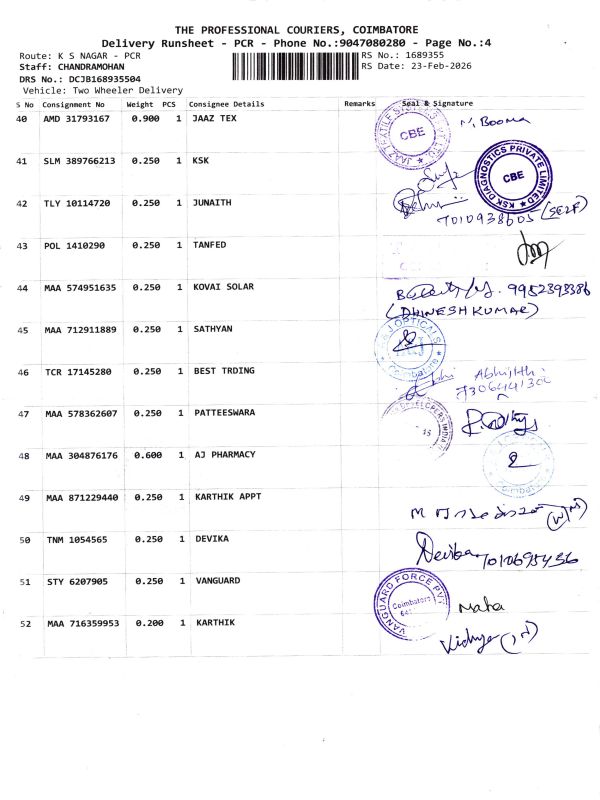 THE PROFESSIONAL COURIERS, COIMBATORE
Delivery Runsheet - PCR - Phone No.:9047080280 - Page No.:4
Route: K S NAGAR - PCR
RS No.: 1689355
Staff: CHANDRAMOHAN
RS Date: 23-Feb-2026
DRS No.: DCJB168935504
Vehicle: Two Wheeler Delivery
S No Consignment No Weight PCS Consignee Details Remarks Seal & Signature
40 AMD 31793167 0.900 1 JAAZ TEX
CBE
41 SLM 389766213 0.250 1 KSK
KSK DIAGNOSTICS PRIVATE LIMITED
CBE
42 TLY 10114720 0.250 1 JUNAITH
7010938605 (SELF)
43 POL 1410290 0.250 1 TANFED
44 MAA 574951635 0.250 1 KOVAI SOLAR
9952393386
(DHINESH KUMAR)
45 MAA 712911889 0.250 1 SATHYAN
J OPTICALS
Coimbatore
46 TCR 17145280 0.250 1 BEST TRDING
47 MAA 578362607 0.250 1 PATTEESWARA
DEVELOPERS INDIA
48 MAA 304876176 0.600 1 AJ PHARMACY
49 MAA 871229440 0.250 1 KARTHIK APPT
50 TNM 1054565 0.250 1 DEVIKA
Devika 7010695436
51 STY 6207905 0.250 1 VANGUARD
VANGUARD FORCE PVT
Coimbatore
Maha
52 MAA 716359953 0.200 1 KARTHIK
Vidhya